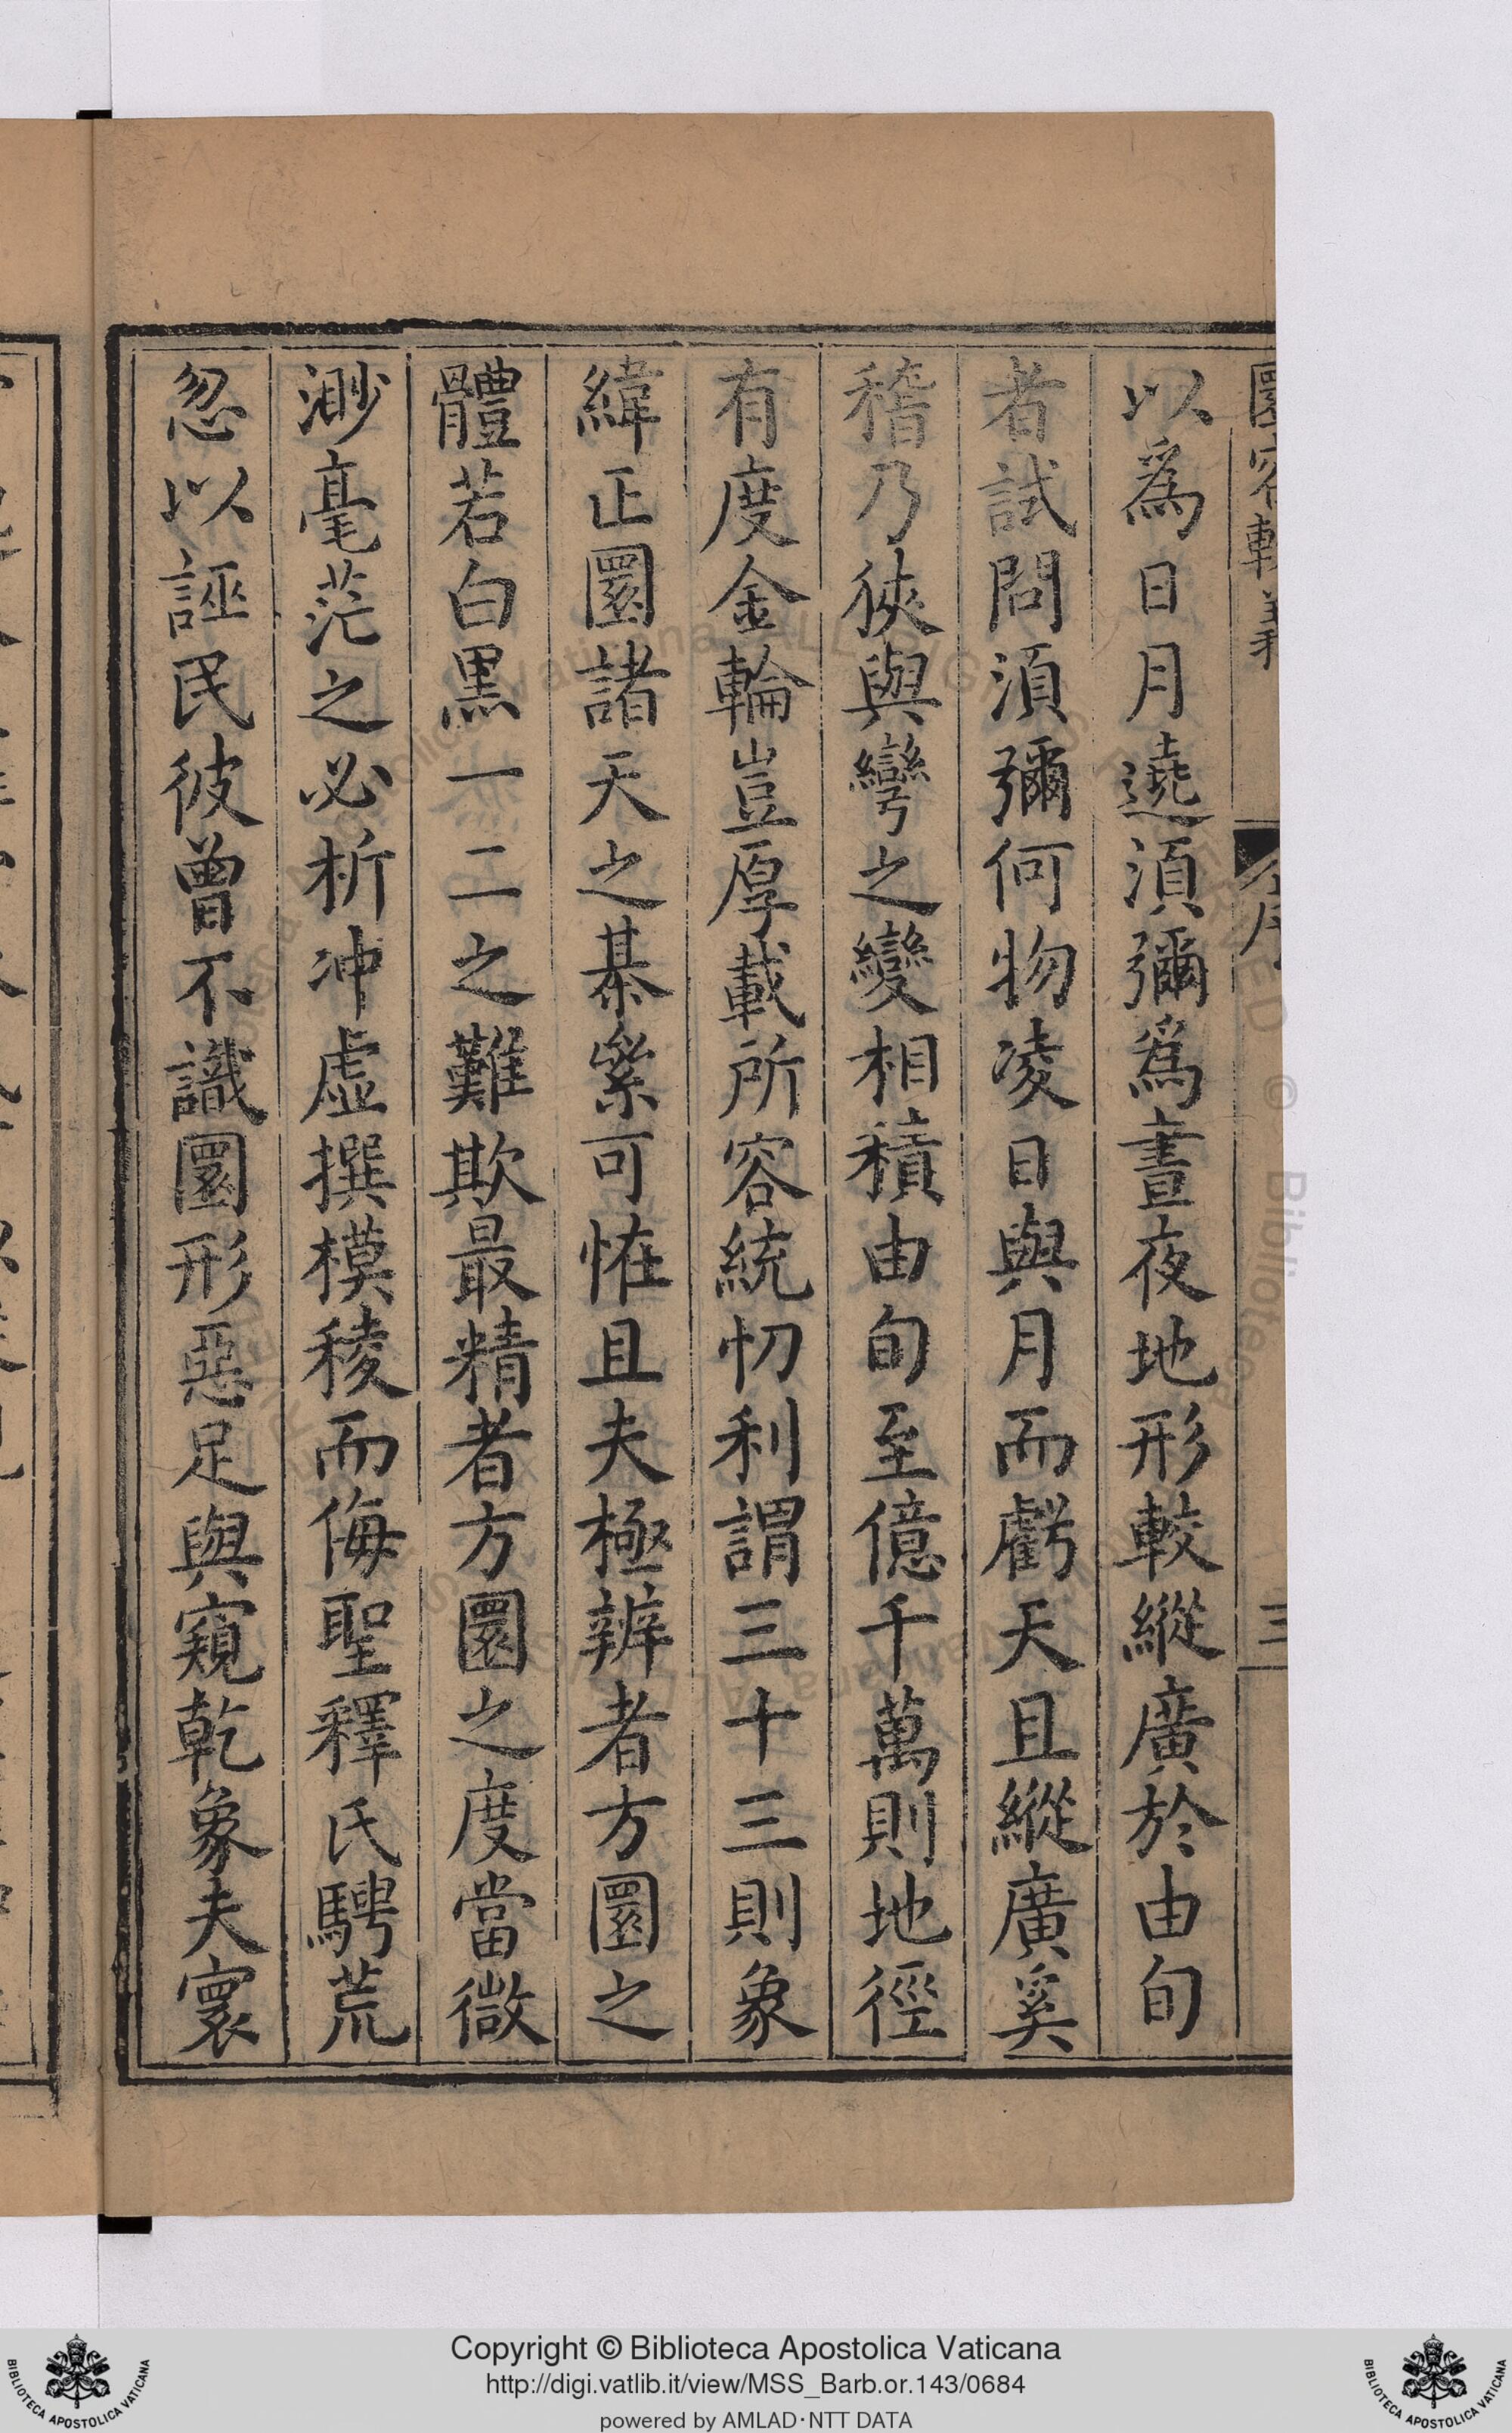 圜容較義
序
三
以為日月遶湏彌爲晝夜地形較縱廣於由旬
者試問湏彌何物凌日與月而虧天且縱廣奚
稽乃狹與彎之變相積由旬至億千萬則地徑
有度金輪豈厚載所容統忉利謂三十三則象
緯正圜諸天之綦絫可恠且夫極辨者方圜之
體若白黒一二之難欺最精者方圜之度當微
渺毫茫之必析冲虛撰模稜而侮聖釋氏騁荒
忽以誣民彼曾不識圜形惡足與窺乾象夫寰
Copyright © Biblioteca Apostolica Vaticana
http://digi.vatlib.it/view/MSS_Barb.or.143/0684
powered by AMLAD·NTT DATA
BIBLIOTECA APOSTOLICA VATICANA
BIBLIOTECA APOSTOLICA VATICANA